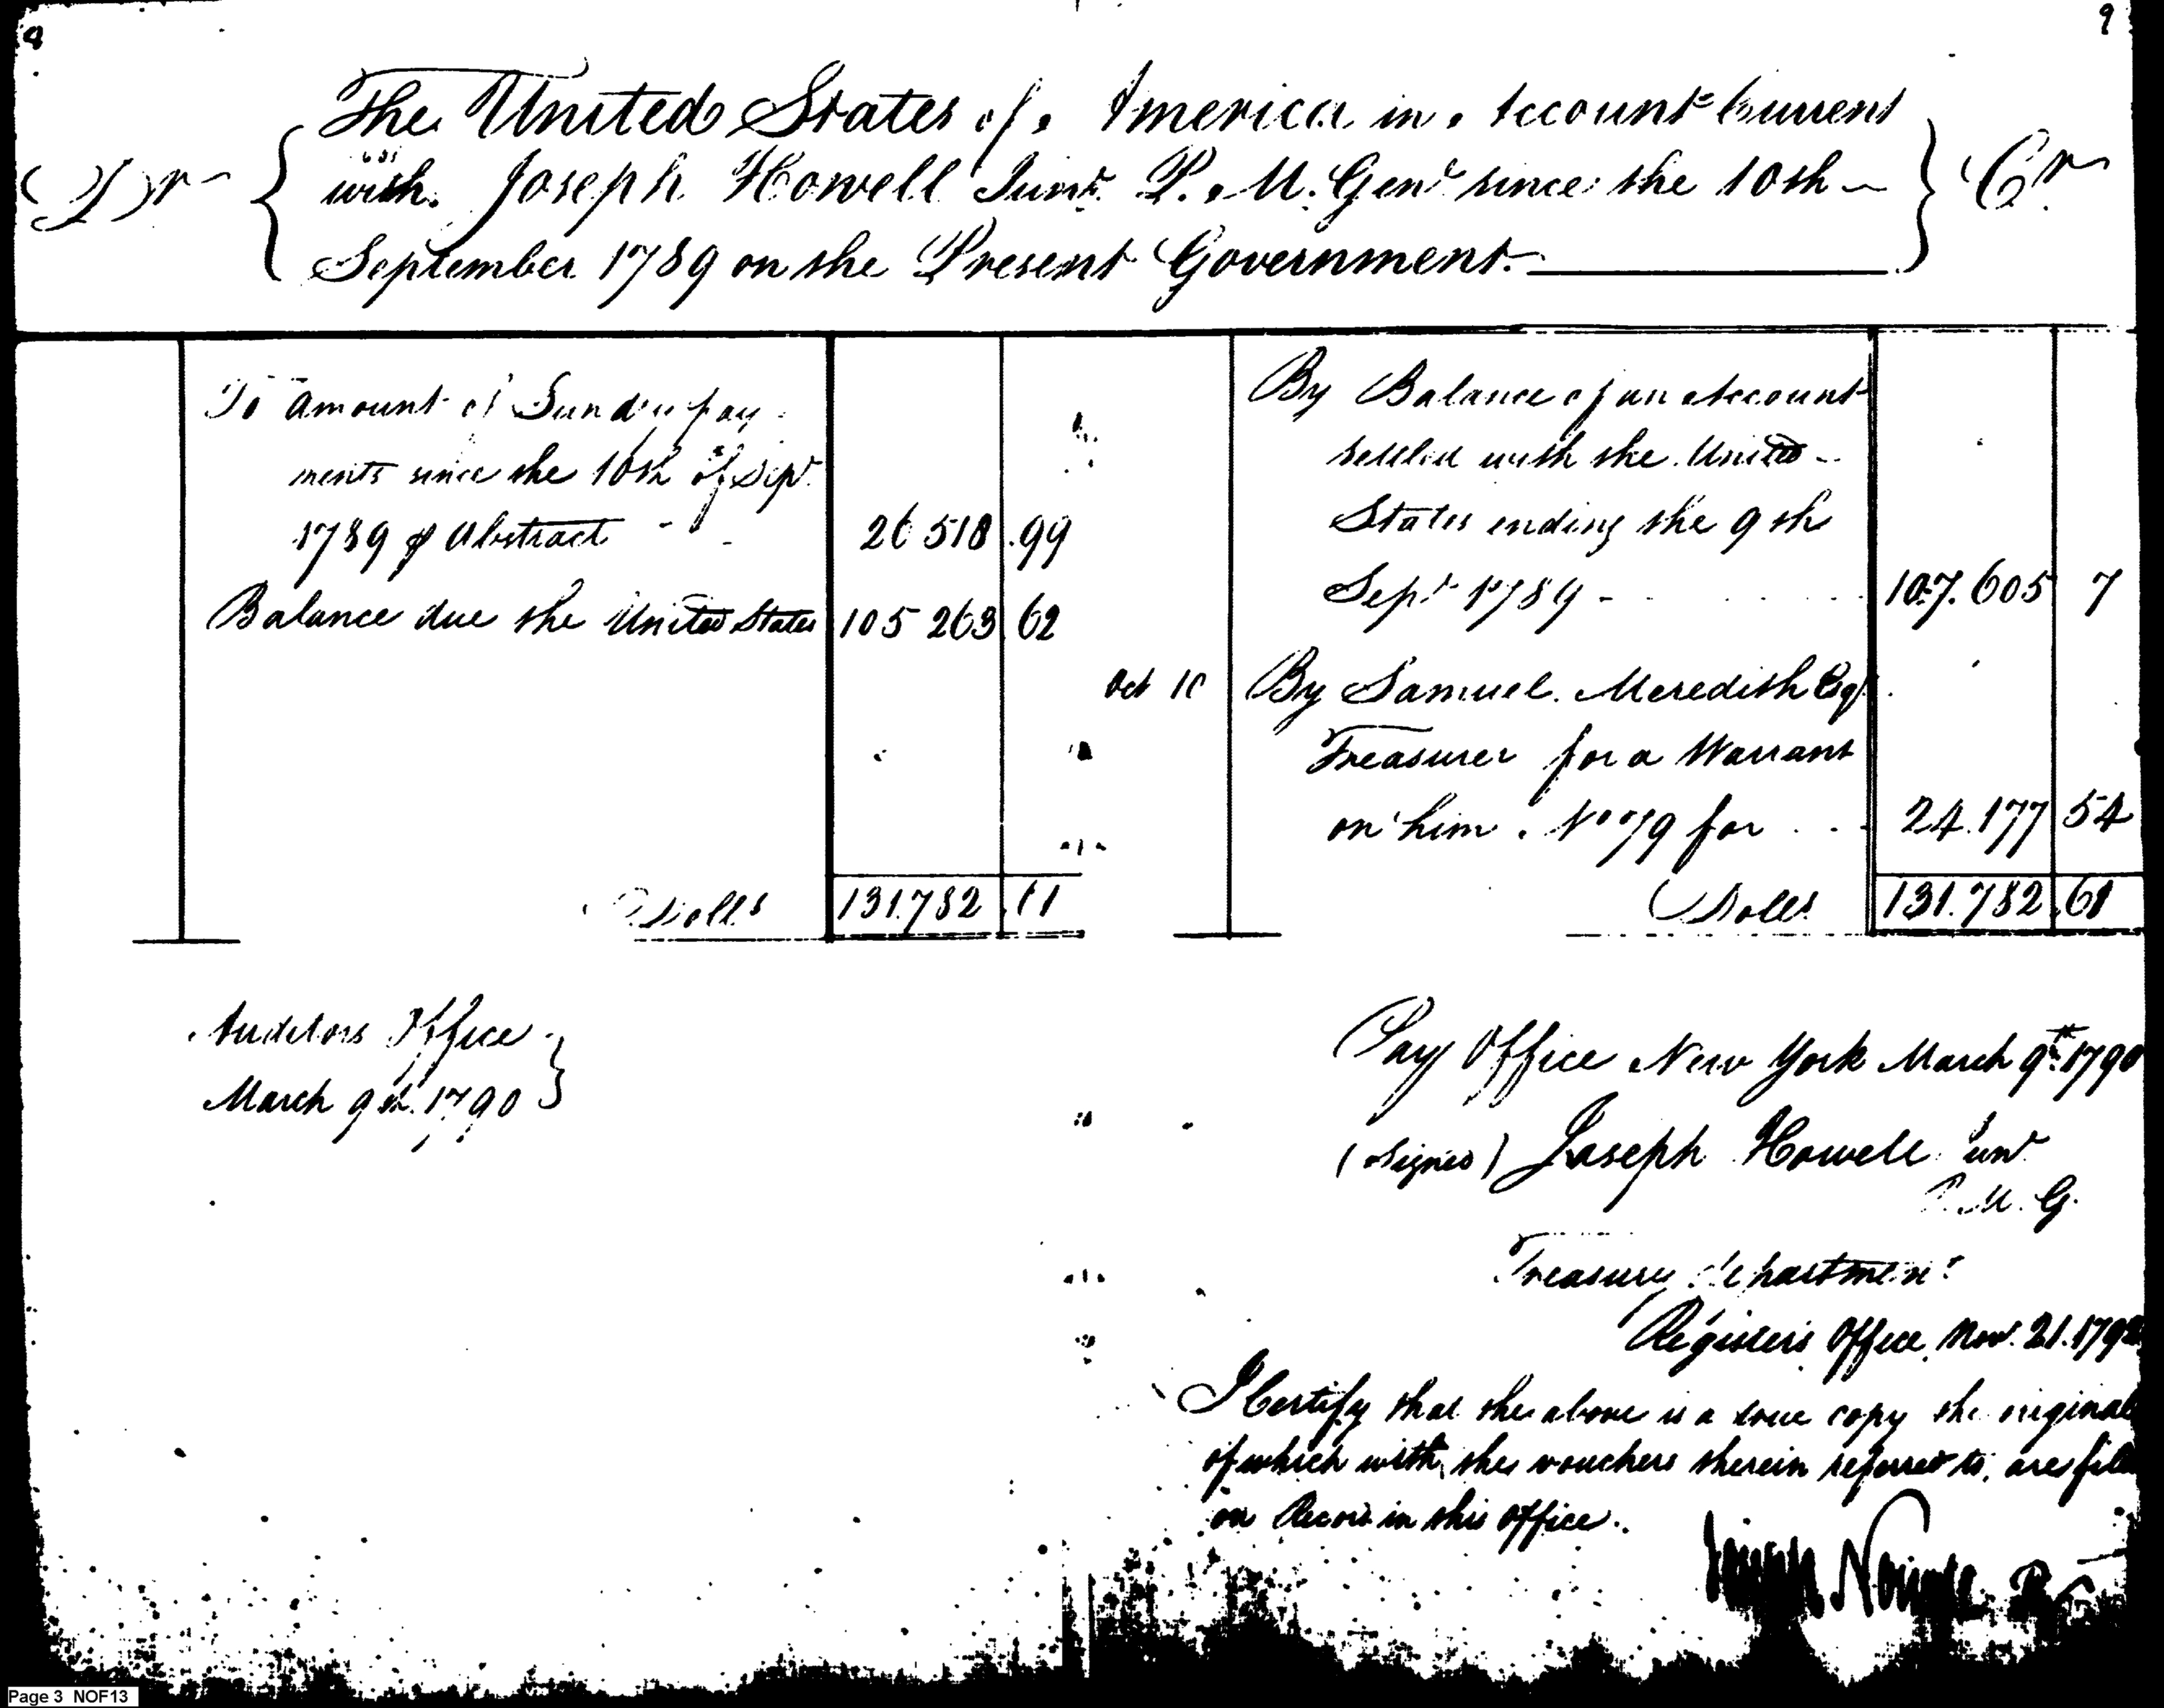 9
The United States of America in Account Current
Dr with Joseph Howell Junr. P. M. Genl since the 10th Cr
September 1789 on the Present Government.
To amount of Sundry pay
ments since the 10th of Sepr
1789 Abstract 26 518 .99
Balance due the United States 105 263 62
Dolls 131.782 .61
By Balance of an Account
settled with the United
States ending the 9th
Sepr 1789 107.605 7
Oct 10 By Samuel Meredith Esqr
Treasurer for a Warrant
on him. No 79 for 24.177 54
Dolls 131.782 .61
Auditors Office
March 9th. 1790
Pay Office New York March 9th. 1790
(signed) Joseph Howell Junr
P. M. G.
Treasury department
Registers Office, Novr. 21. 1792
I Certify that the above is a true copy the original
of which with the vouchers therein referred to, are filed
on Record in this office.
Joseph Nourse Regr
Page 3 NOF13